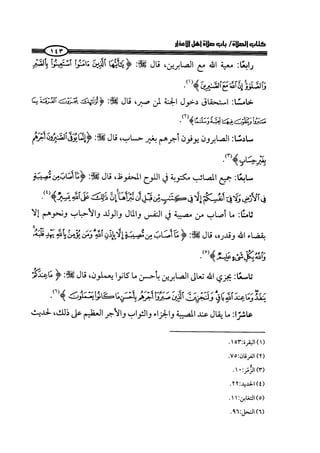 كتاب الصلاة/ باب صلاة أهل الأعذار
١٤٣
رابعًا: معية الله مع الصابرين، قال ﷻ: ﴿ يَٰٓأَيُّهَا ٱلَّذِينَ ءَامَنُوا۟ ٱسْتَعِينُوا۟ بِٱلصَّبْرِ
وَٱلصَّلَوٰةِ إِنَّ ٱللَّهَ مَعَ ٱلصَّٰبِرِينَ ﴾(١).
خامسًا: استحقاق دخول الجنة لمن صبر، قال ﷻ: ﴿ أُو۟لَٰٓئِكَ يُجْزَوْنَ ٱلْغُرْفَةَ بِمَا
صَبَرُوا۟ وَيُلَقَّوْنَ فِيهَا تَحِيَّةً وَسَلَٰمًا ﴾(٢).
سادسًا: الصابرون يوفون أجرهم بغير حساب، قال ﷻ: ﴿ إِنَّمَا يُوَفَّى ٱلصَّٰبِرُونَ أَجْرَهُم
بِغَيْرِ حِسَابٍ ﴾(٣).
سابعًا: جميع المصائب مكتوبة في اللوح المحفوظ، قال ﷻ: ﴿ مَآ أَصَابَ مِن مُّصِيبَةٍ
فِى ٱلْأَرْضِ وَلَا فِىٓ أَنفُسِكُمْ إِلَّا فِى كِتَٰبٍ مِّن قَبْلِ أَن نَّبْرَأَهَآ إِنَّ ذَٰلِكَ عَلَى ٱللَّهِ يَسِيرٌ ﴾(٤).
ثامنًا: ما أصاب من مصيبة في النفس والمال والولد والأحباب ونحوهم إلا
بقضاء الله وقدره، قال ﷻ: ﴿ مَآ أَصَابَ مِن مُّصِيبَةٍ إِلَّا بِإِذْنِ ٱللَّهِ وَمَن يُؤْمِنۢ بِٱللَّهِ يَهْدِ قَلْبَهُۥ
وَٱللَّهُ بِكُلِّ شَىْءٍ عَلِيمٌ ﴾(٥).
تاسعًا: يجزي الله تعالى الصابرين بأحسن ما كانوا يعملون، قال ﷻ: ﴿ مَا عِندَكُمْ
يَنفَدُ وَمَا عِندَ ٱللَّهِ بَاقٍ وَلَنَجْزِيَنَّ ٱلَّذِينَ صَبَرُوٓا۟ أَجْرَهُم بِأَحْسَنِ مَا كَانُوا۟ يَعْمَلُونَ ﴾(٦).
عاشرًا: ما يقال عند المصيبة والجزاء والثواب والأجر العظيم على ذلك، لحديث
(١) البقرة: ١٥٣.
(٢) الفرقان: ٧٥.
(٣) الزُّمَر: ١٠.
(٤) الحديد: ٢٢.
(٥) التغابن: ١١.
(٦) النحل: ٩٦.